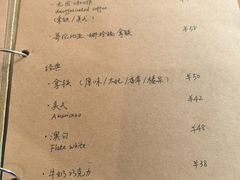 decaffeinated coffee
(拿铁/美式)
· 哥伦比亚 娜玲珑 拿铁 ¥58
经典
· 拿铁 (原味/太妃/香草/榛果) ¥50
· 美式 ¥42
Americano
· 澳白 ¥48
Flate White
· 牛奶巧克力 ¥38